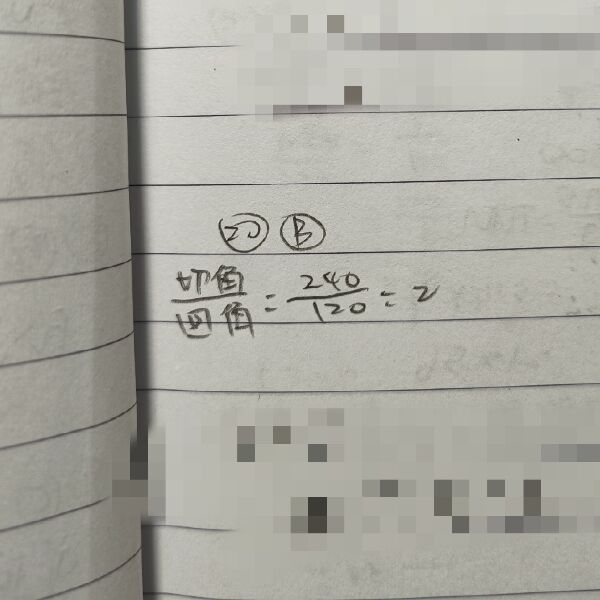 20 B
切角/四角 = 240/120 = 2